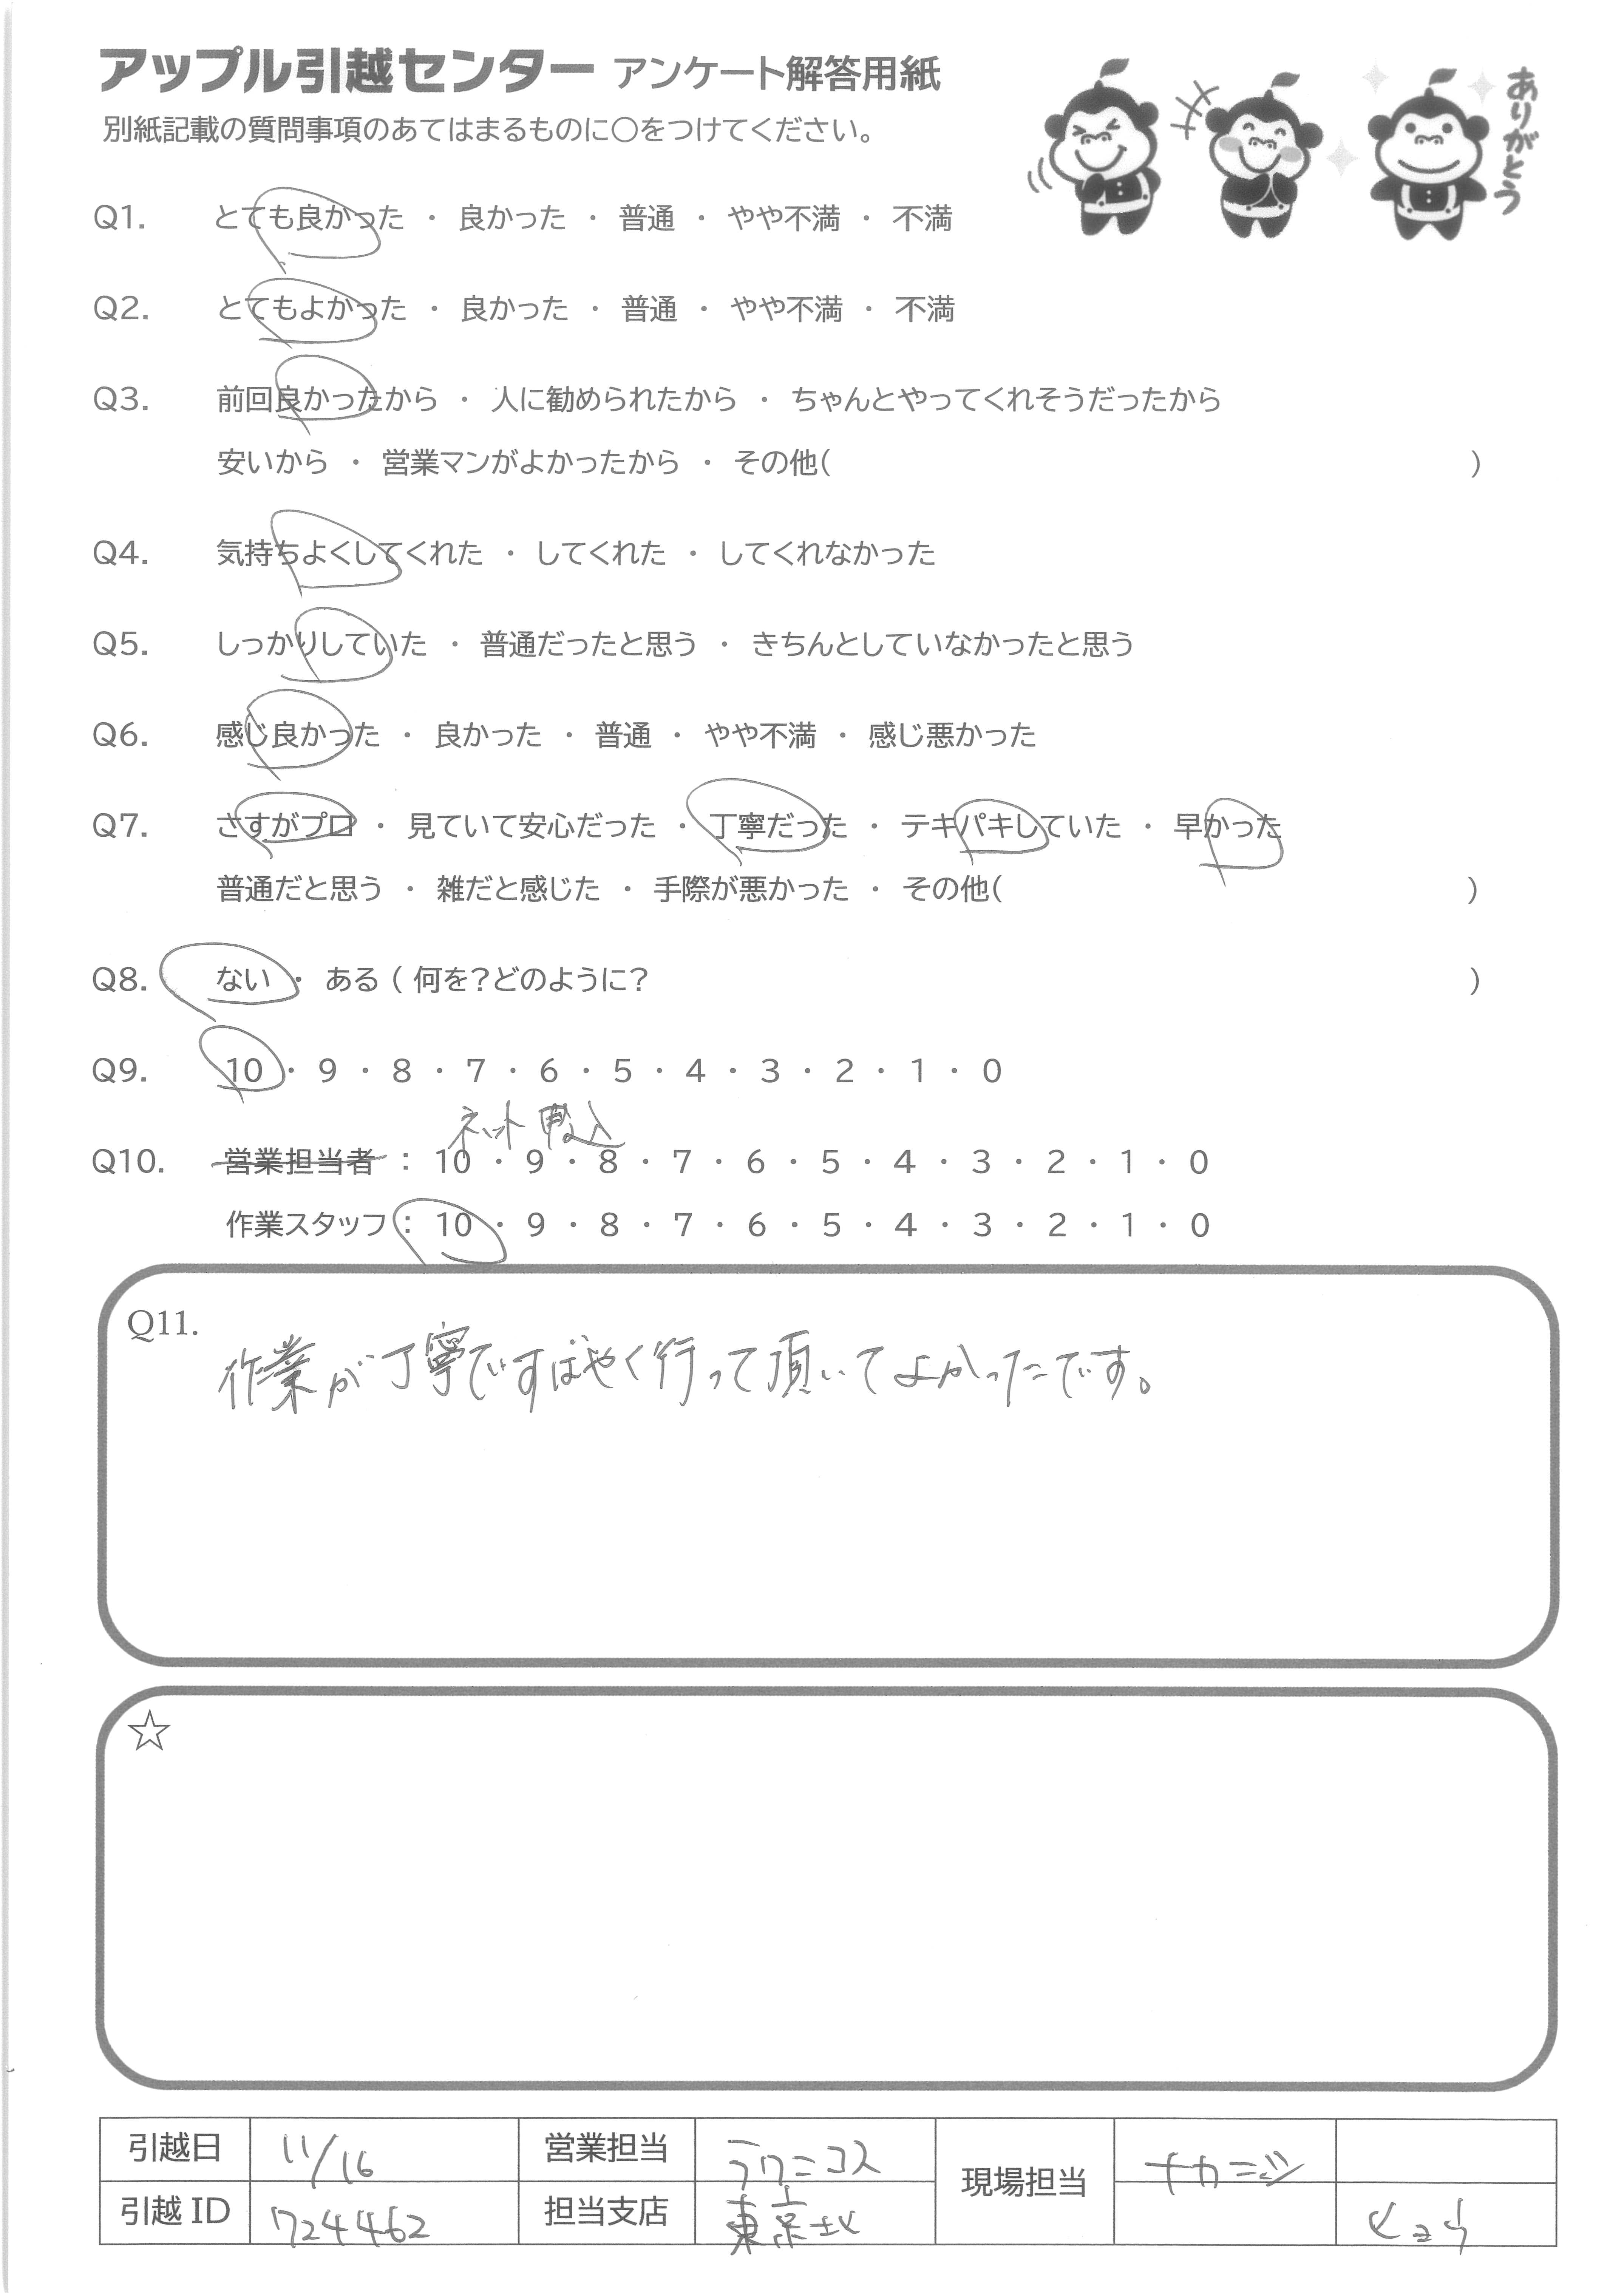 アップル引越センター アンケート解答用紙
別紙記載の質問事項のあてはまるものに○をつけてください。
ありがとう
Q1. とても良かった ・ 良かった ・ 普通 ・ やや不満 ・ 不満
Q2. とてもよかった ・ 良かった ・ 普通 ・ やや不満 ・ 不満
Q3. 前回良かったから ・ 人に勧められたから ・ ちゃんとやってくれそうだったから
安いから ・ 営業マンがよかったから ・ その他( )
Q4. 気持ちよくしてくれた ・ してくれた ・ してくれなかった
Q5. しっかりしていた ・ 普通だったと思う ・ きちんとしていなかったと思う
Q6. 感じ良かった ・ 良かった ・ 普通 ・ やや不満 ・ 感じ悪かった
Q7. さすがプロ ・ 見ていて安心だった ・ 丁寧だった ・ テキパキしていた ・ 早かった
普通だと思う ・ 雑だと感じた ・ 手際が悪かった ・ その他( )
Q8. ない ・ ある ( 何を?どのように? )
Q9. 10 ・ 9 ・ 8 ・ 7 ・ 6 ・ 5 ・ 4 ・ 3 ・ 2 ・ 1 ・ 0
ネット申込
Q10. 営業担当者 : 10 ・ 9 ・ 8 ・ 7 ・ 6 ・ 5 ・ 4 ・ 3 ・ 2 ・ 1 ・ 0
作業スタッフ : 10 ・ 9 ・ 8 ・ 7 ・ 6 ・ 5 ・ 4 ・ 3 ・ 2 ・ 1 ・ 0
Q11.
作業が丁寧ですばやく行って頂いてよかったです。
☆
引越日 11/16 営業担当 ラクニコス 現場担当 ナカニシ
引越ID 724462 担当支店 東京北